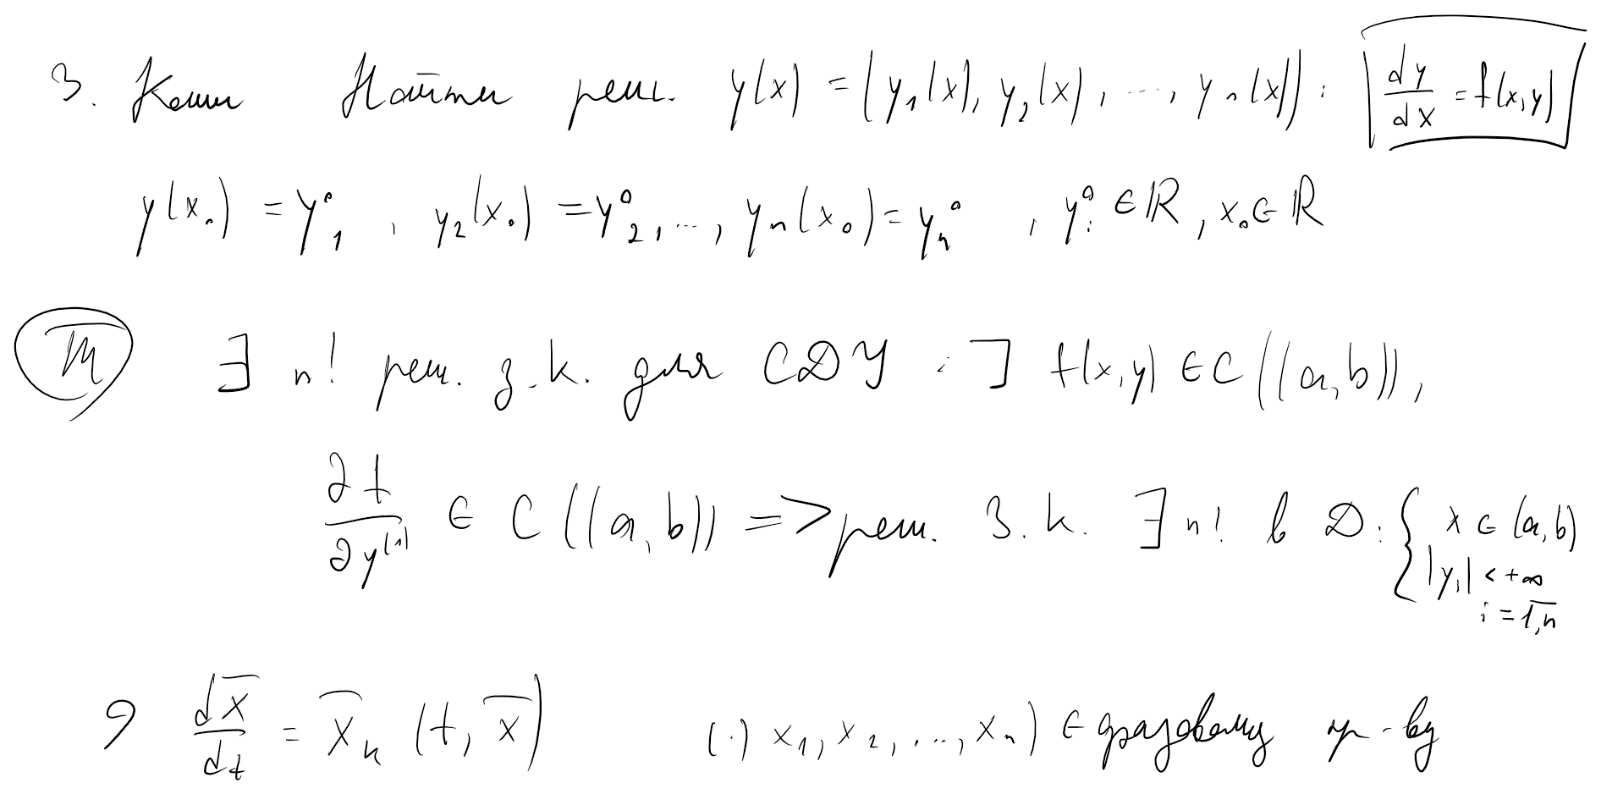 З. Коши Найти реш. y(x) = (y₁(x), y₂(x), ..., yₙ(x)) : dy/dx = f(x,y)
y(x₀) = y₁⁰, y₂(x₀) = y₂⁰, ..., yₙ(x₀) = yₙ⁰, yᵢ⁰ ∈ ℝ, x₀ ∈ ℝ
Т ∃ и! реш. з.к. для СДУ : ] f(x,y) ∈ C((a,b)),
∂f/∂y⁽ⁱ⁾ ∈ C((a,b)) => реш. З.к. ∃ и! в D: { x ∈ (a,b)
|yᵢ| < +∞
i = 1,n
dx̅/dt = x̅ₙ (t, x̅) (·) x₁, x₂, ..., xₙ) ∈ фазовому пр-ву